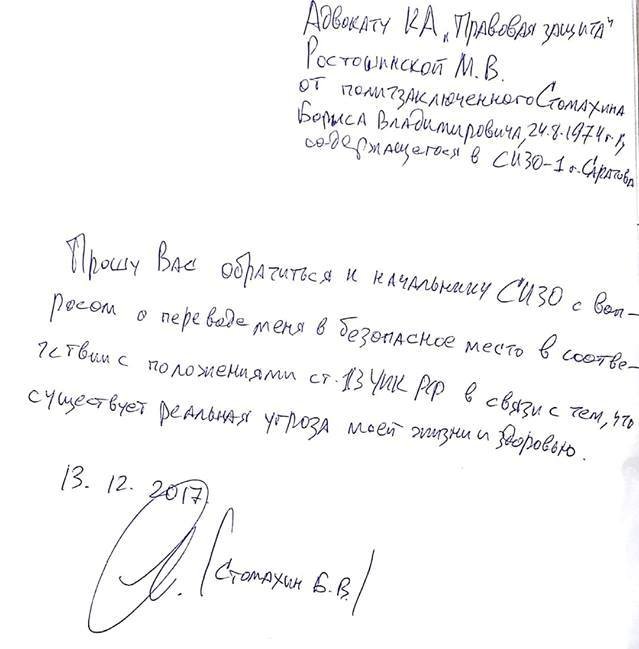 Адвокату КА „Правовая защита"
Ростошинской М.В.
от политзаключенного Стомахина
Бориса Владимировича, 24.8.1974 г.р,
содержащегося в СИЗО-1 г. Саратова
Прошу Вас обратиться к начальнику СИЗО с воп-
росом о переводе меня в безопасное место в соотве-
тствии с положениями ст. 13 УИК РФ в связи с тем, что
существует реальная угроза моей жизни и здоровью.
13. 12. 2017
/Стомахин Б.В./